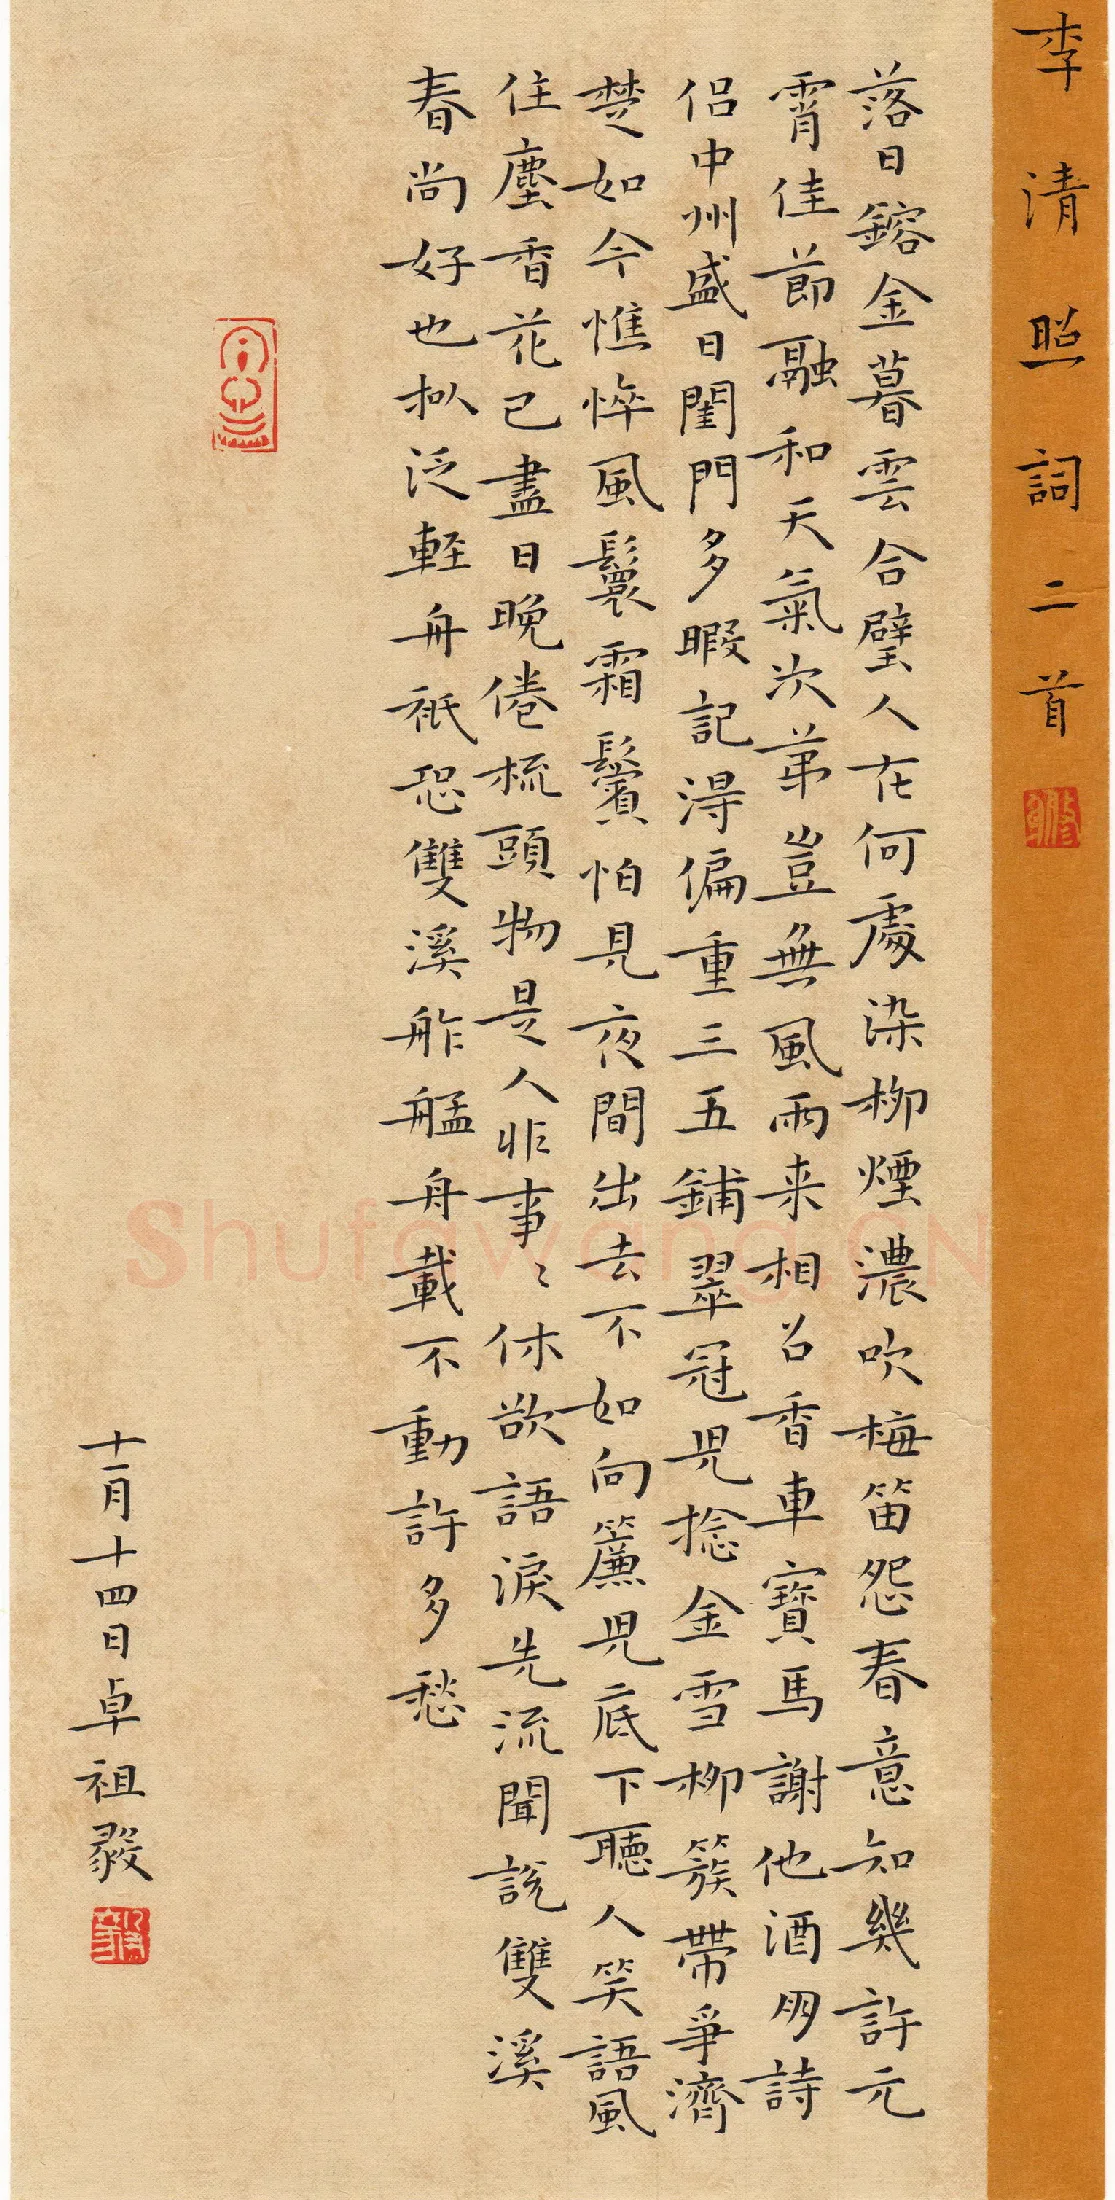 李清照詞二首
落日鎔金暮雲合璧人在何處染柳煙濃吹梅笛怨春意知幾許元
宵佳節融和天氣次第豈無風雨来相召香車寶馬謝他酒朋詩
侣中州盛日閨門多暇記淂偏重三五鋪翠冠児捻金雪柳簇帶爭濟
楚如今憔悴風鬟霜鬢怕見夜間出去不如向簾児底下聽人笑語風
住塵香花已盡日晚倦梳頭物是人非事〻休欲語淚先流聞說雙溪
春尚好也拟泛輕舟祇恐雙溪舴艋舟載不動許多愁
十一月十四日卓祖毅
Shufawang.CN